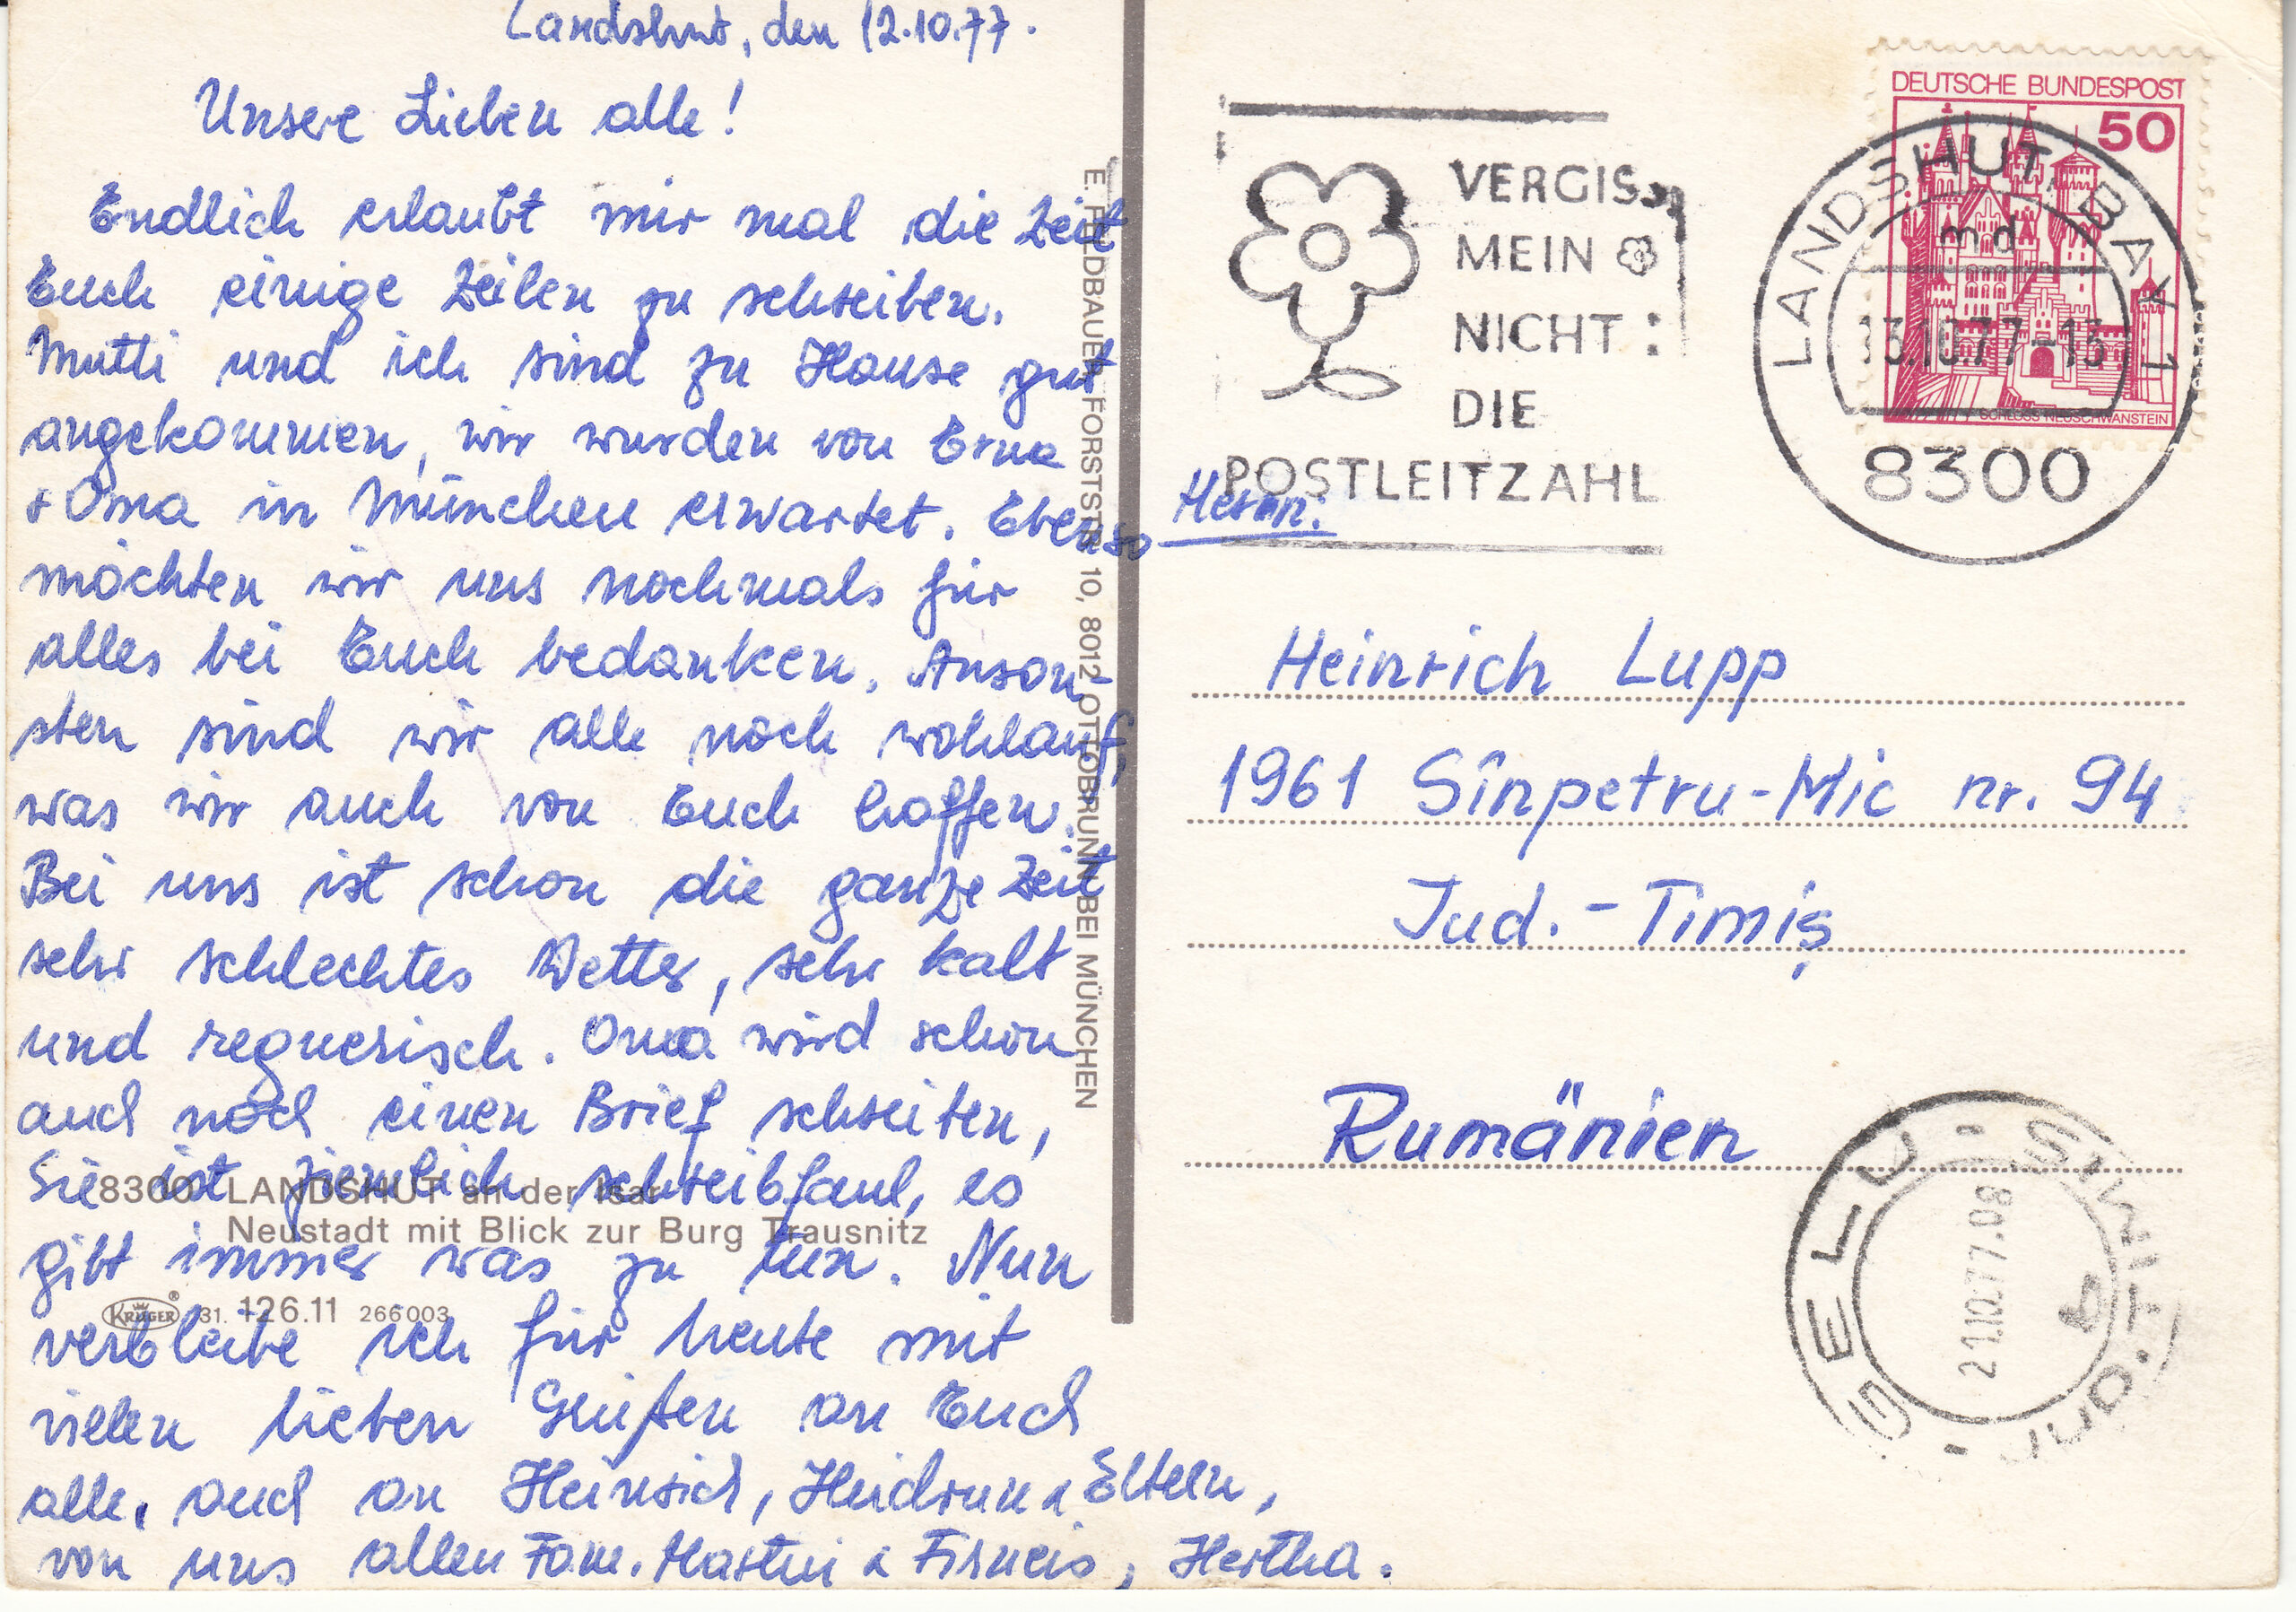 Landshut, den 12.10.77.
Unsere Lieben alle!
Endlich erlaubt mir mal die Zeit
Euch einige Zeilen zu schreiben.
Mutti und ich sind zu Hause gut
angekommen, wir wurden von Erna
+ Oma in München erwartet. Ebenso
möchten wir uns nochmals für
alles bei Euch bedanken. Anson-
sten sind wir alle noch wohlauf,
was wir auch von Euch hoffen.
Bei uns ist schon die ganze Zeit
sehr schlechtes Wetter, sehr kalt
und regnerisch. Oma wird schon
auch noch einen Brief schreiben,
Sie ist ziemlich schreibfaul, es
gibt immer was zu tun. Nun
verbleibe ich für heute mit
vielen lieben Grüßen an Euch
alle, auch an Heinrich, Heidrun u Eltern,
von uns allen Fam. Martini u , Hertha.
8300 LANDSHUT an der Isar
Neustadt mit Blick zur Burg Trausnitz
KRÜGER ® 31. 126.11 266003
E. FELDBAUER, FORSTSTR. 10, 8012 OTTOBRUNN BEI MÜNCHEN
VERGIS
MEIN
NICHT:
DIE
POSTLEITZAHL
DEUTSCHE BUNDESPOST
50
SCHLOSS NEUSCHWANSTEIN
LANDSHUT, BAY 1
md
13.10.77-13
8300
Herrn:
Heinrich Lupp
1961 Sînpetru-Mic nr. 94
Jud.-Timiş
Rumänien
21.10.77.08